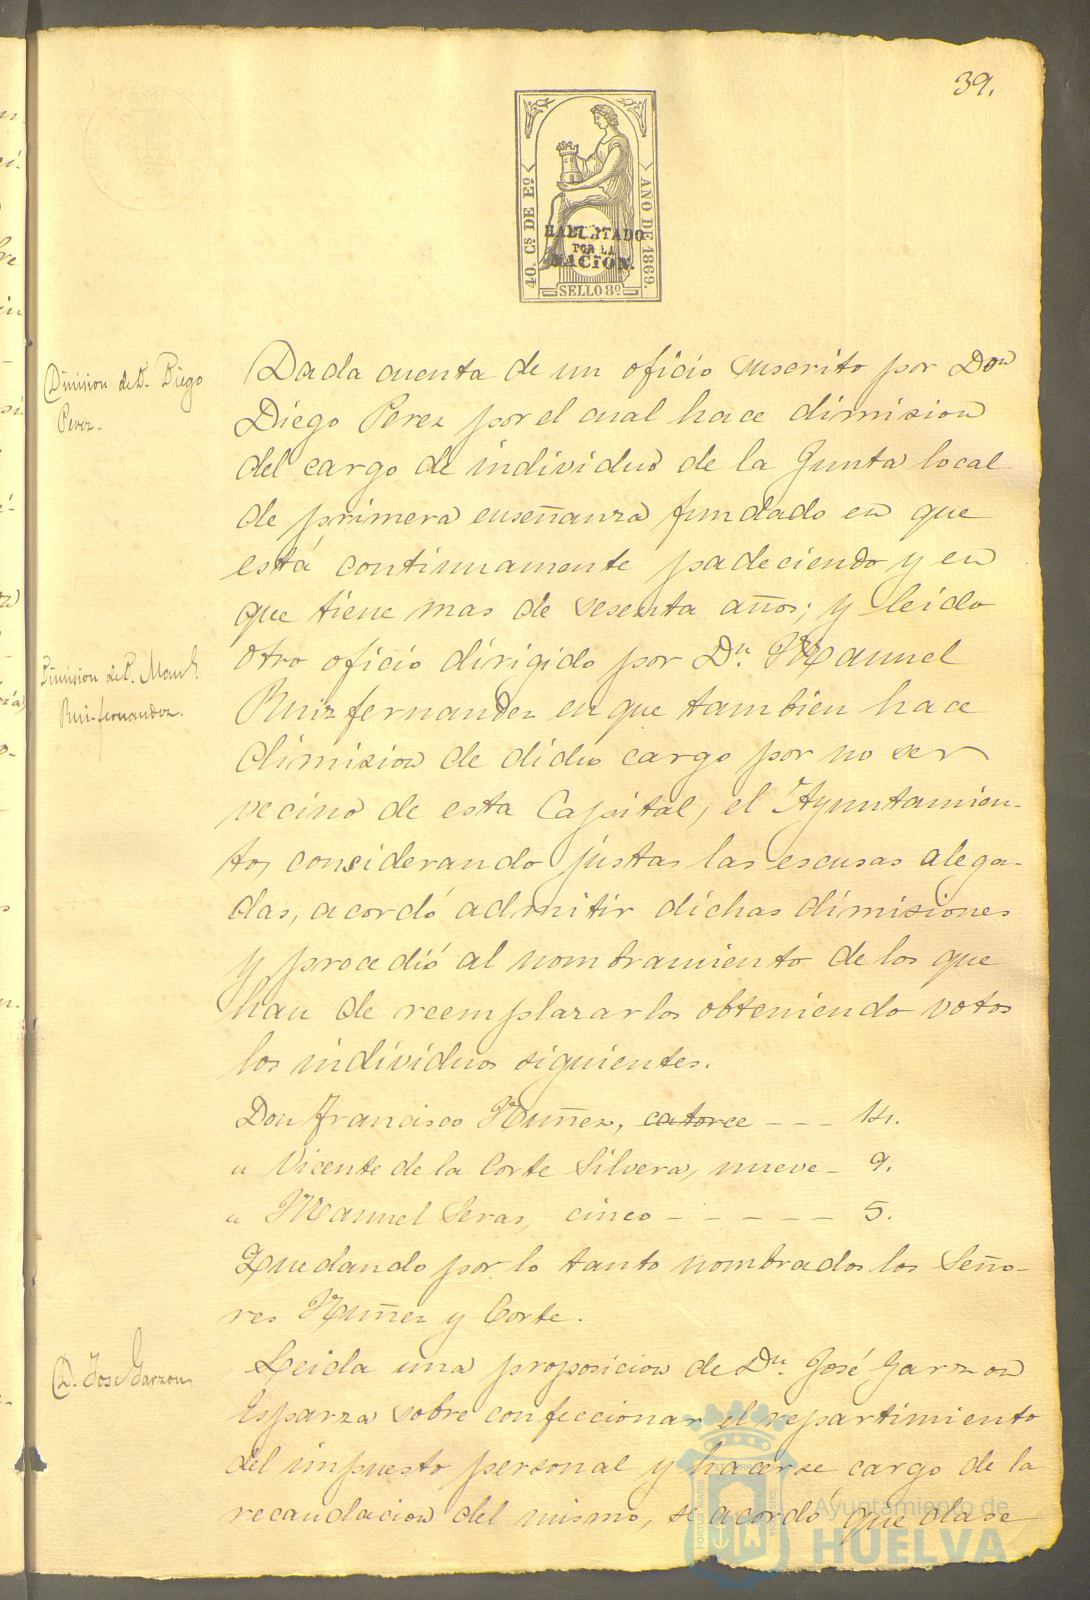 39.
40. Cs DE Eo
AÑO DE 1869.
HABILITADO
POR LA
NACION.
SELLO 8o
Dimision de D. Diego
Perez.
Dada cuenta de un oficio suscrito por Don
Diego Perez por el cual hace dimision
del cargo de individuo de la Junta local
de primera enseñanza fundado en que
está continuamente padeciendo y en
que tiene mas de sesenta años; y leido
Dimision de D. Manl
Ruizfernandez.
otro oficio dirigido por Dn. Manuel
Ruizfernandez en que tambien hace
dimision de dicho cargo por no ser
vecino de esta Capital, el Ayuntamien-
to, considerando justas las escusas alega-
das, acordó admitir dichas dimisiones
y procedió al nombramiento de los que
han de reemplazarlos obteniendo votos
los individuos siguientes.
Don Francisco Nuñez, catorce - - - 14.
" Vicente de la Corte Silvera, nueve - 9.
" Manuel Seras, cinco - - - - - 5.
Quedando por lo tanto nombrados los Seño-
res Nuñez y Corte.
D. José Garzon
Leida una proposicion de Dn. José Garzon
Esparza sobre confeccionar el repartimiento
del impuesto personal y hacerse cargo de la
recaudacion del mismo, se acordó que dase
Ayuntamiento de
HUELVA